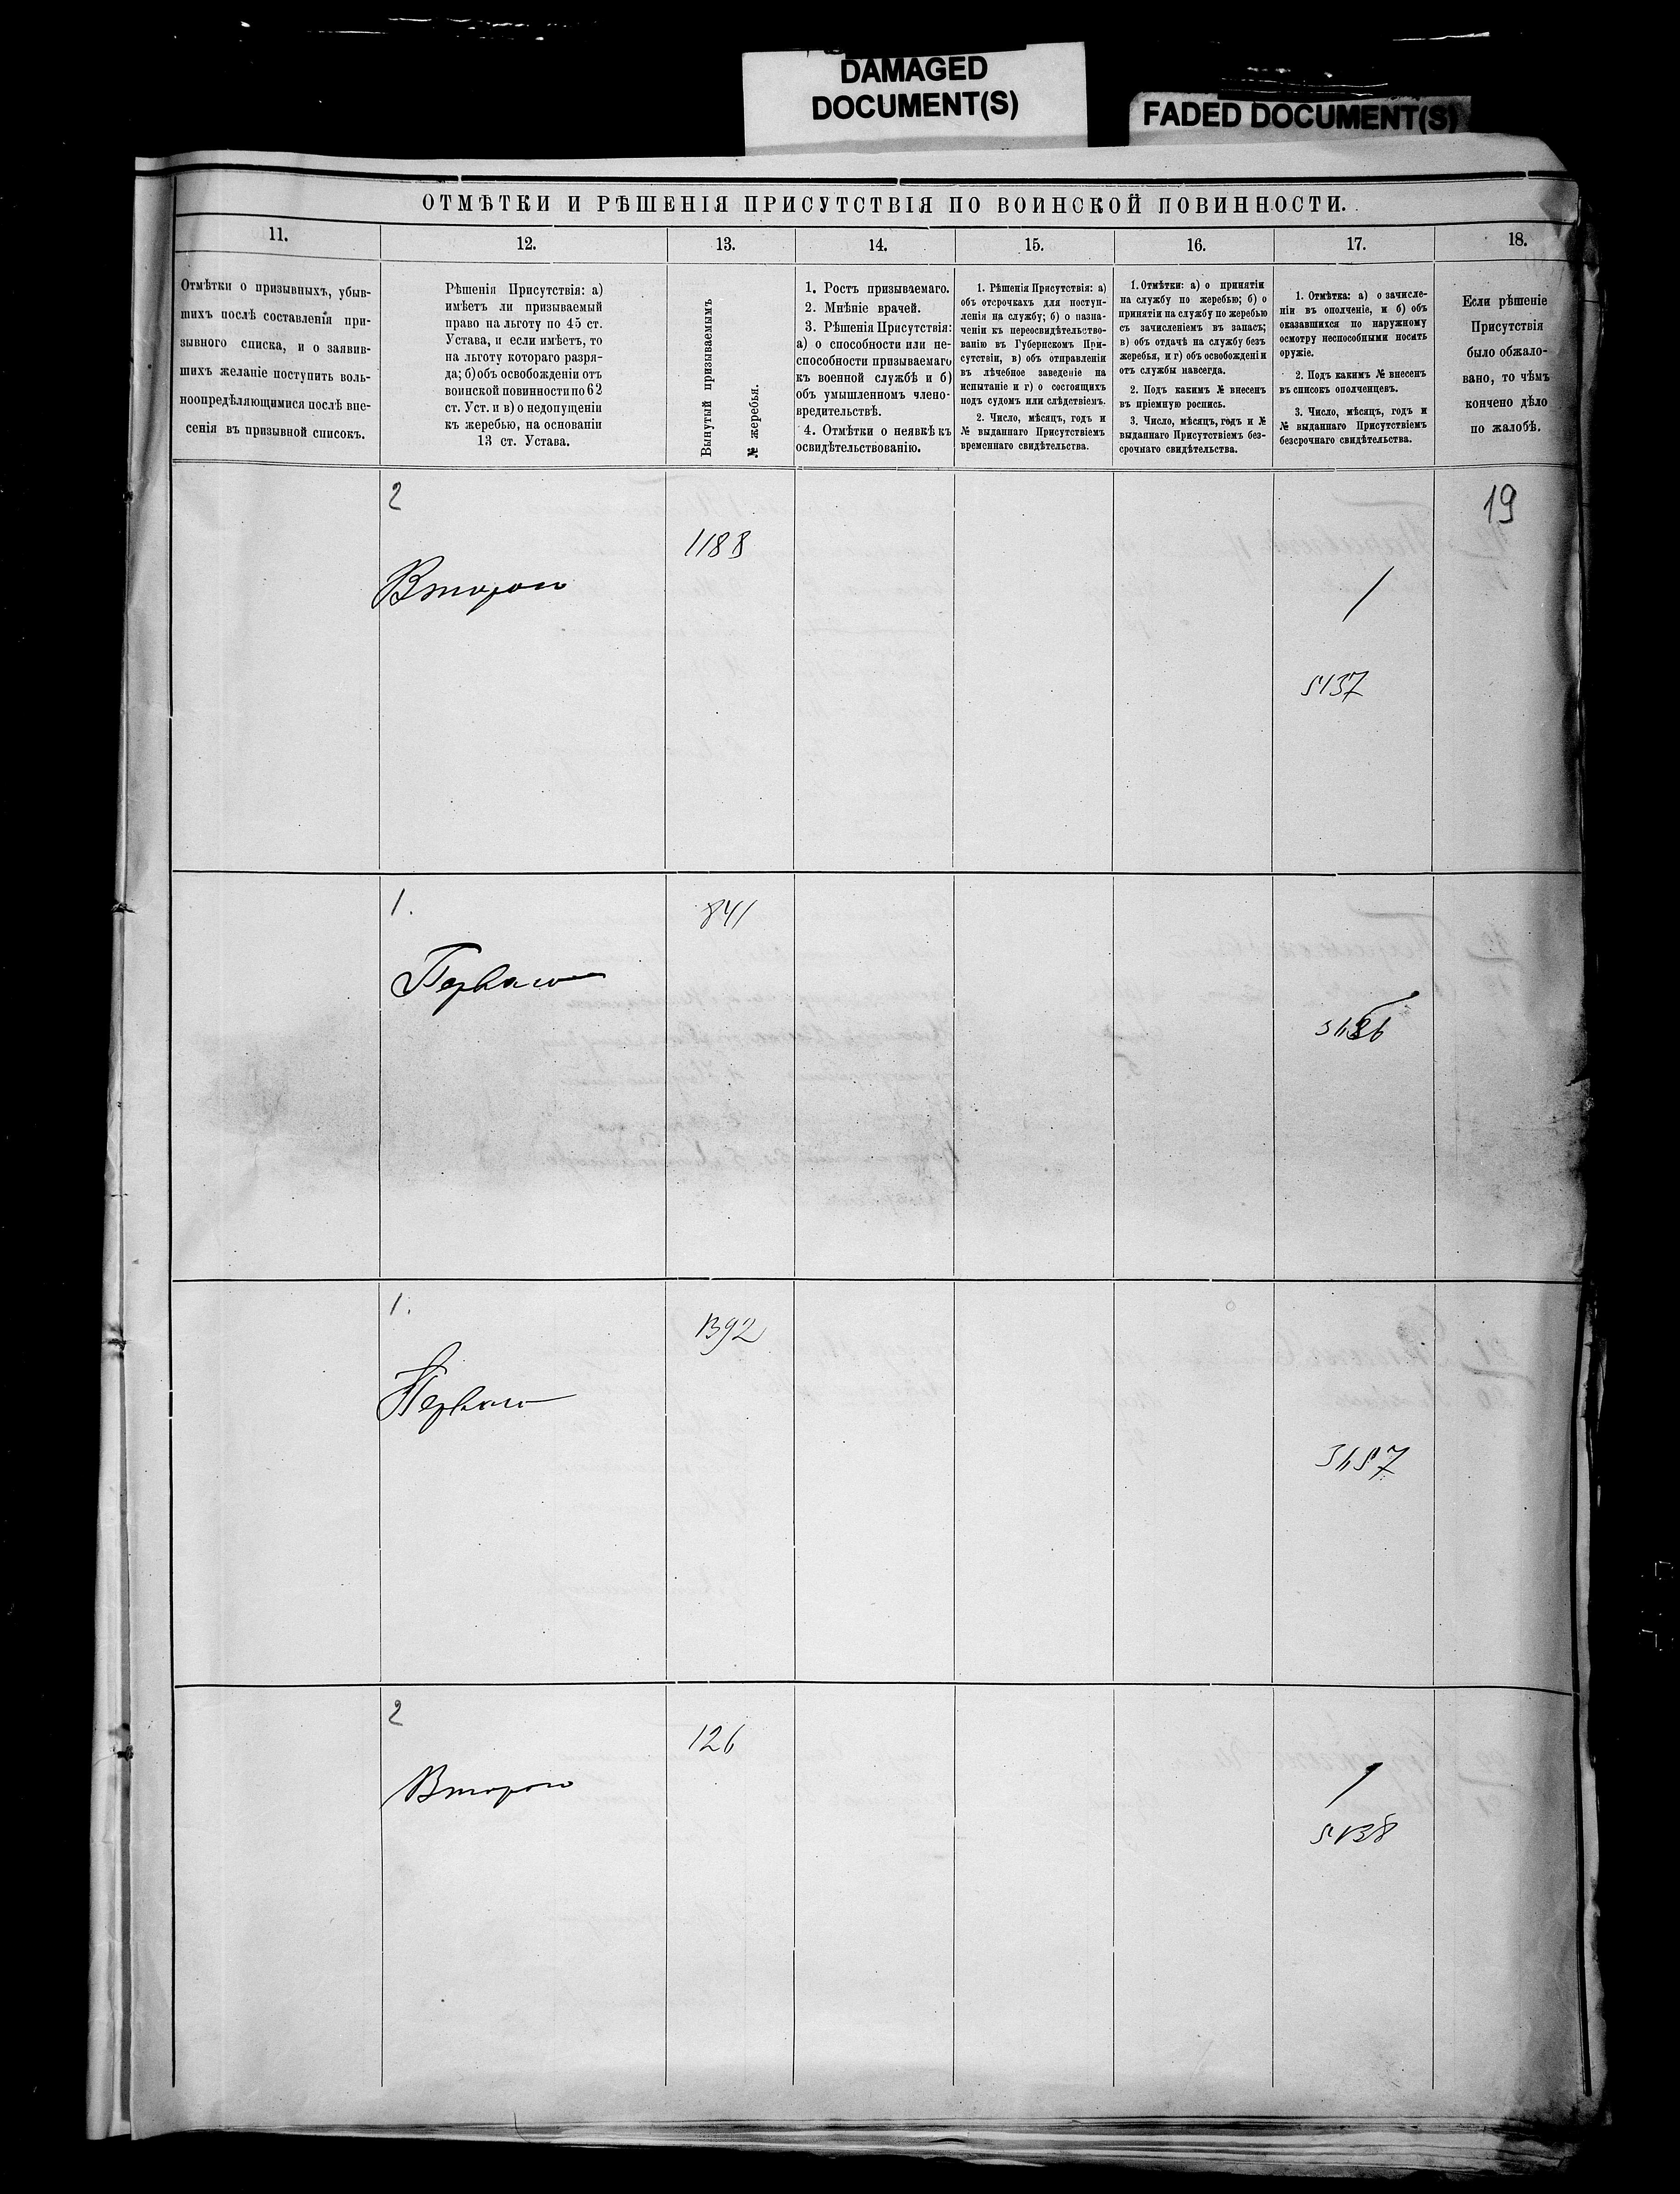 DAMAGED
DOCUMENT(S)
FADED DOCUMENT(S)
ОТМѢТКИ И РѢШЕНІЯ ПРИСУТСТВІЯ ПО ВОИНСКОЙ ПОВИННОСТИ.
11.
12.
13.
14.
15.
16.
17.
18.
Отмѣтки о призывныхъ, убыв-
шихъ послѣ составленія при-
зывного списка, и о заявив-
шихъ желаніе поступить воль-
ноопредѣляющимися послѣ вне-
сенія въ призывной списокъ.
Рѣшенія Присутствія: а)
имѣетъ ли призываемый
право на льготу по 45 ст.
Устава, и если имѣетъ, то
на льготу котораго разря-
да; б) объ освобожденіи отъ
воинской повинности по 62
ст. Уст. и в) о недопущеніи
къ жеребью, на основаніи
13 ст. Устава.
Вынутый призываемымъ
№ жеребья.
1. Ростъ призываемаго.
2. Мнѣніе врачей.
3. Рѣшенія Присутствія:
а) о способности или не-
способности призываемаго
къ военной службѣ и б)
объ умышленномъ члено-
вредительствѣ.
4. Отмѣтки о неявкѣ къ
освидѣтельствованію.
1. Рѣшенія Присутствія: а)
объ отсрочкахъ для поступ-
ленія на службу; б) о назна-
ченіи къ переосвидѣтельство-
ванію въ Губернскомъ При-
сутствіи, в) объ отправленіи
въ лѣчебное заведеніе на
испытаніе и г) о состоящихъ
подъ судомъ или слѣдствіемъ.
2. Число, мѣсяцъ, годъ и
№ выданнаго Присутствіемъ
временнаго свидѣтельства.
1. Отмѣтки: а) о принятіи
на службу по жеребью; б) о
принятіи на службу по жеребью
съ зачисленіемъ въ запасъ;
в) объ отдачѣ на службу безъ
жеребья, и г) объ освобожденіи
отъ службы навсегда.
2. Подъ какимъ № внесенъ
въ пріемную роспись.
3. Число, мѣсяцъ, годъ и №
выданнаго Присутствіемъ без-
срочнаго свидѣтельства.
1. Отмѣтка: а) о зачисле-
ніи въ ополченіе, и б) объ
оказавшихся по наружному
осмотру неспособными носить
оружіе.
2. Подъ какимъ № внесенъ
въ списокъ ополченцевъ.
3. Число, мѣсяцъ, годъ и
№ выданнаго Присутствіемъ
безсрочнаго свидѣтельства.
Если рѣшеніе
Присутствія
было обжало-
вано, то чѣмъ
кончено дѣло
по жалобѣ.
2
19
1188
Второго
/
5137
1.
841
Перваго
1.
1392
Перваго
2
126
Второго
/
5138